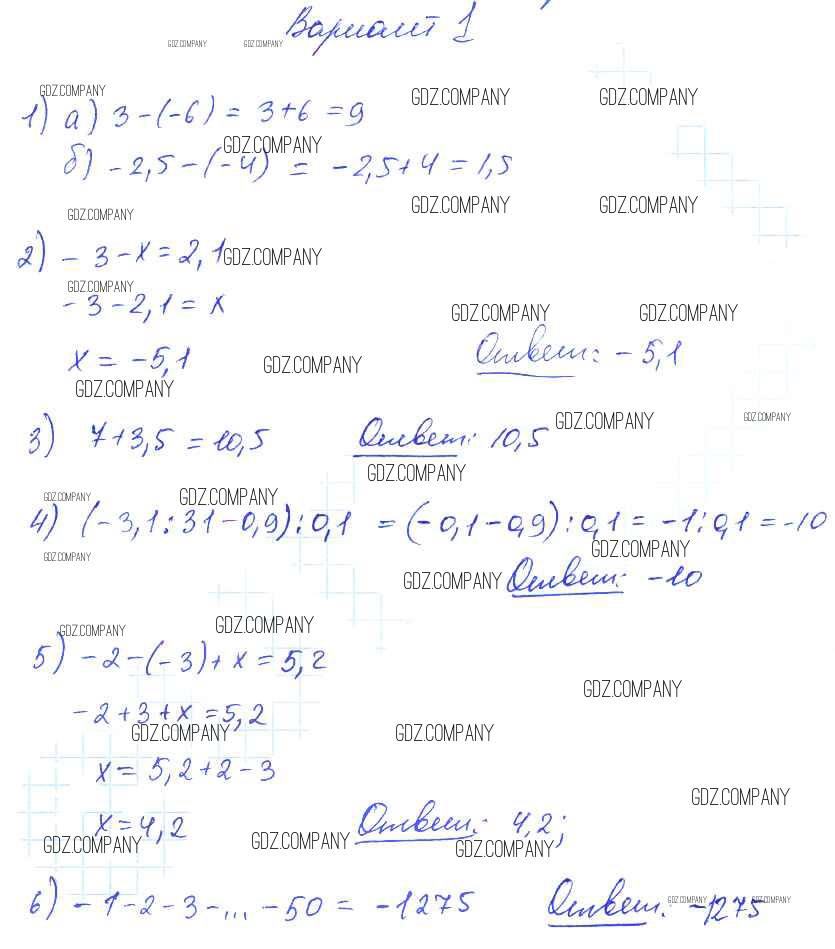 Вариант 1
GDZ.COMPANY GDZ.COMPANY
GDZ.COMPANY GDZ.COMPANY GDZ.COMPANY
1) а) 3 - (-6) = 3 + 6 = 9
GDZ.COMPANY
б) -2,5 - (-4) = -2,5 + 4 = 1,5
GDZ.COMPANY GDZ.COMPANY GDZ.COMPANY
2) - 3 - x = 2,1 GDZ.COMPANY
GDZ.COMPANY
- 3 - 2,1 = x
GDZ.COMPANY GDZ.COMPANY
x = -5,1 GDZ.COMPANY Ответ: -5,1
GDZ.COMPANY
3) 7 + 3,5 = 10,5 Ответ: 10,5 GDZ.COMPANY GDZ.COMPANY
GDZ.COMPANY
GDZ.COMPANY GDZ.COMPANY
4) (-3,1 : 31 - 0,9) : 0,1 = (-0,1 - 0,9) : 0,1 = -1 : 0,1 = -10
GDZ.COMPANY GDZ.COMPANY
GDZ.COMPANY Ответ: -10
GDZ.COMPANY GDZ.COMPANY
5) -2 - (-3) + x = 5,2
GDZ.COMPANY
-2 + 3 + x = 5,2
GDZ.COMPANY GDZ.COMPANY
x = 5,2 + 2 - 3
GDZ.COMPANY
x = 4,2 Ответ: 4,2;
GDZ.COMPANY GDZ.COMPANY GDZ.COMPANY
6) -1 - 2 - 3 - ... - 50 = -1275 Ответ: -1275
GDZ.COMPANY GDZ.COMPANY